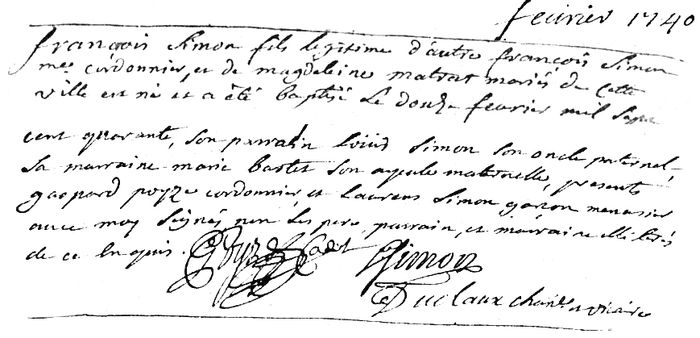 fevrier 1740
françois Simon fils legitime d'autre françois Simon
me. cordonnier, et de magdeleine matrat mariés de cette
ville est né et a été baptisé Le douze fevrier mil sept
cent quarante, son parrain Louis Simon son oncle paternel
Sa marraine marie bastet son ayeule maternelle, presents
gaspard poyze cordonnier et Laurens Simon garçon menusier
avec moy signés non Les pere, parrain, et marraine illiterés
de ce Enquis.
Simon
Duclaux vicaire